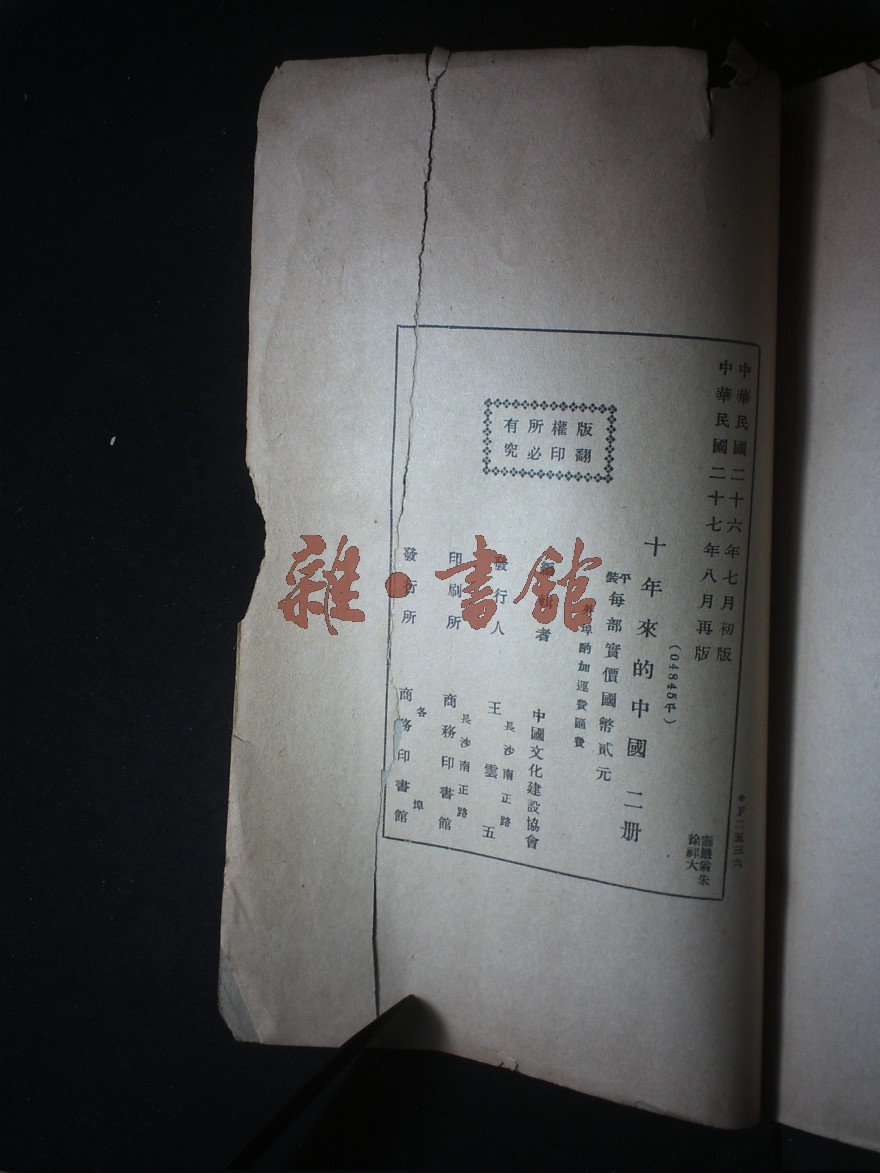 中華民國二十六年七月初版
中華民國二十七年八月再版
(04845平)
十年來的中國 二册
平裝每部實價國幣貳元
外埠酌加運費匯費
編輯者 中國文化建設協會
發行人 王雲五
長沙南正路
印刷所 商務印書館
長沙南正路
發行所 商務印書館
各埠
版權所有
翻印必究
雜·書館